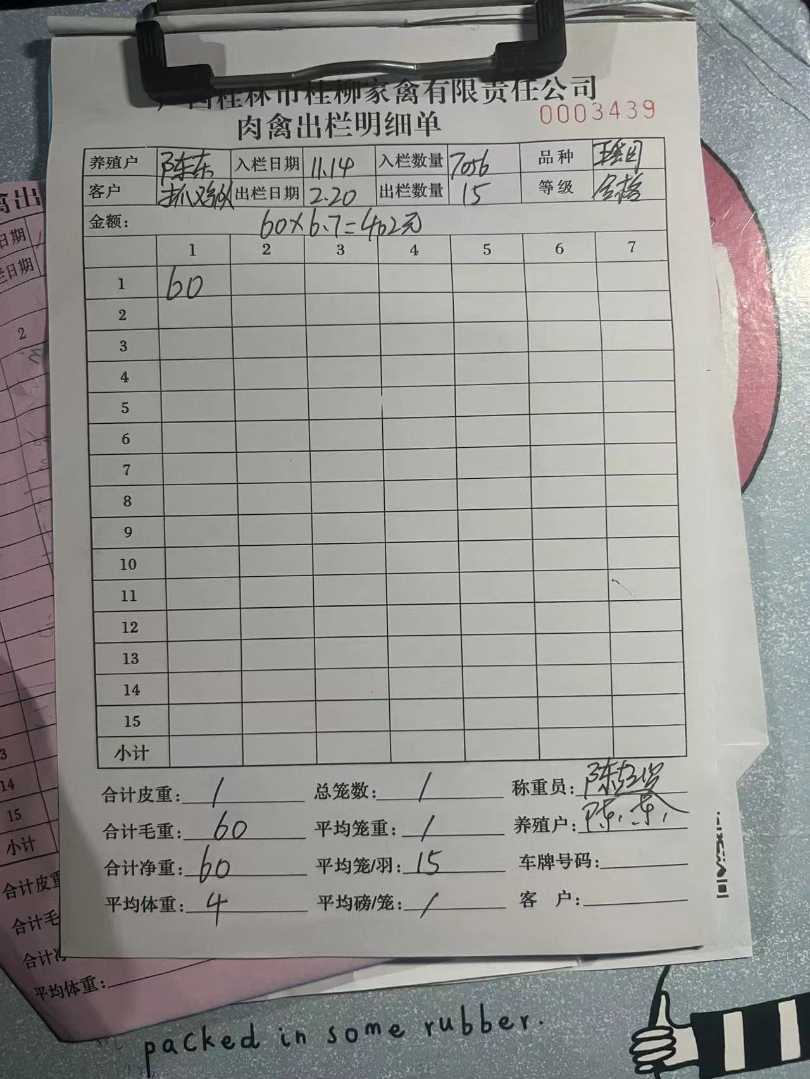 广西桂林市桂柳家禽有限责任公司
肉禽出栏明细单 0003439
养殖户 陈东 入栏日期 11.14 入栏数量 7056 品种
客户 抓鸡队 出栏日期 2.20 出栏数量 15 等级 合格
金额: 60×6.7=402元
1 2 3 4 5 6 7
1 60
2
3
4
5
6
7
8
9
10
11
12
13
14
15
小计
合计皮重: / 总笼数: / 称重员:
合计毛重: 60 平均笼重: / 养殖户: 陈东
合计净重: 60 平均笼/羽: 15 车牌号码:
平均体重: 4 平均磅/笼: / 客 户:
禽出
日期
栏日期
2
3
14
15
小计
合计皮重
合计毛
合计净
平均体重:
packed in some rubber.